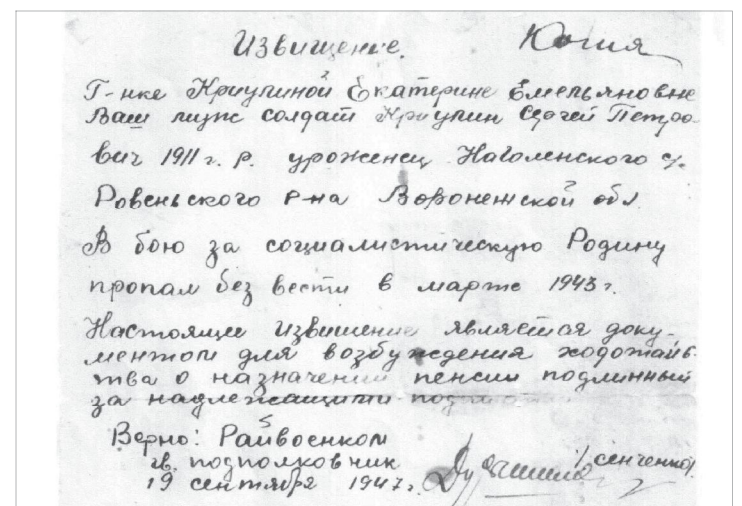 Извищение. Копия
Г-нке Криулиной Екатерине Емельяновне
Ваш муж солдат Криулин Сергей Петро-
вич 1911 г. р. уроженец Наголенского с/с
Ровеньского р-на Воронежской обл.
В бою за социалистическую Родину
пропал без вести в марте 1943 г.
Настоящее извищение является доку-
ментом для возбуждения ходотайс-
тва о назначении пенсии подлинный
за надлежащими
Верно: Райвоенком
гв. подполковник
19 сентября 1947 г.